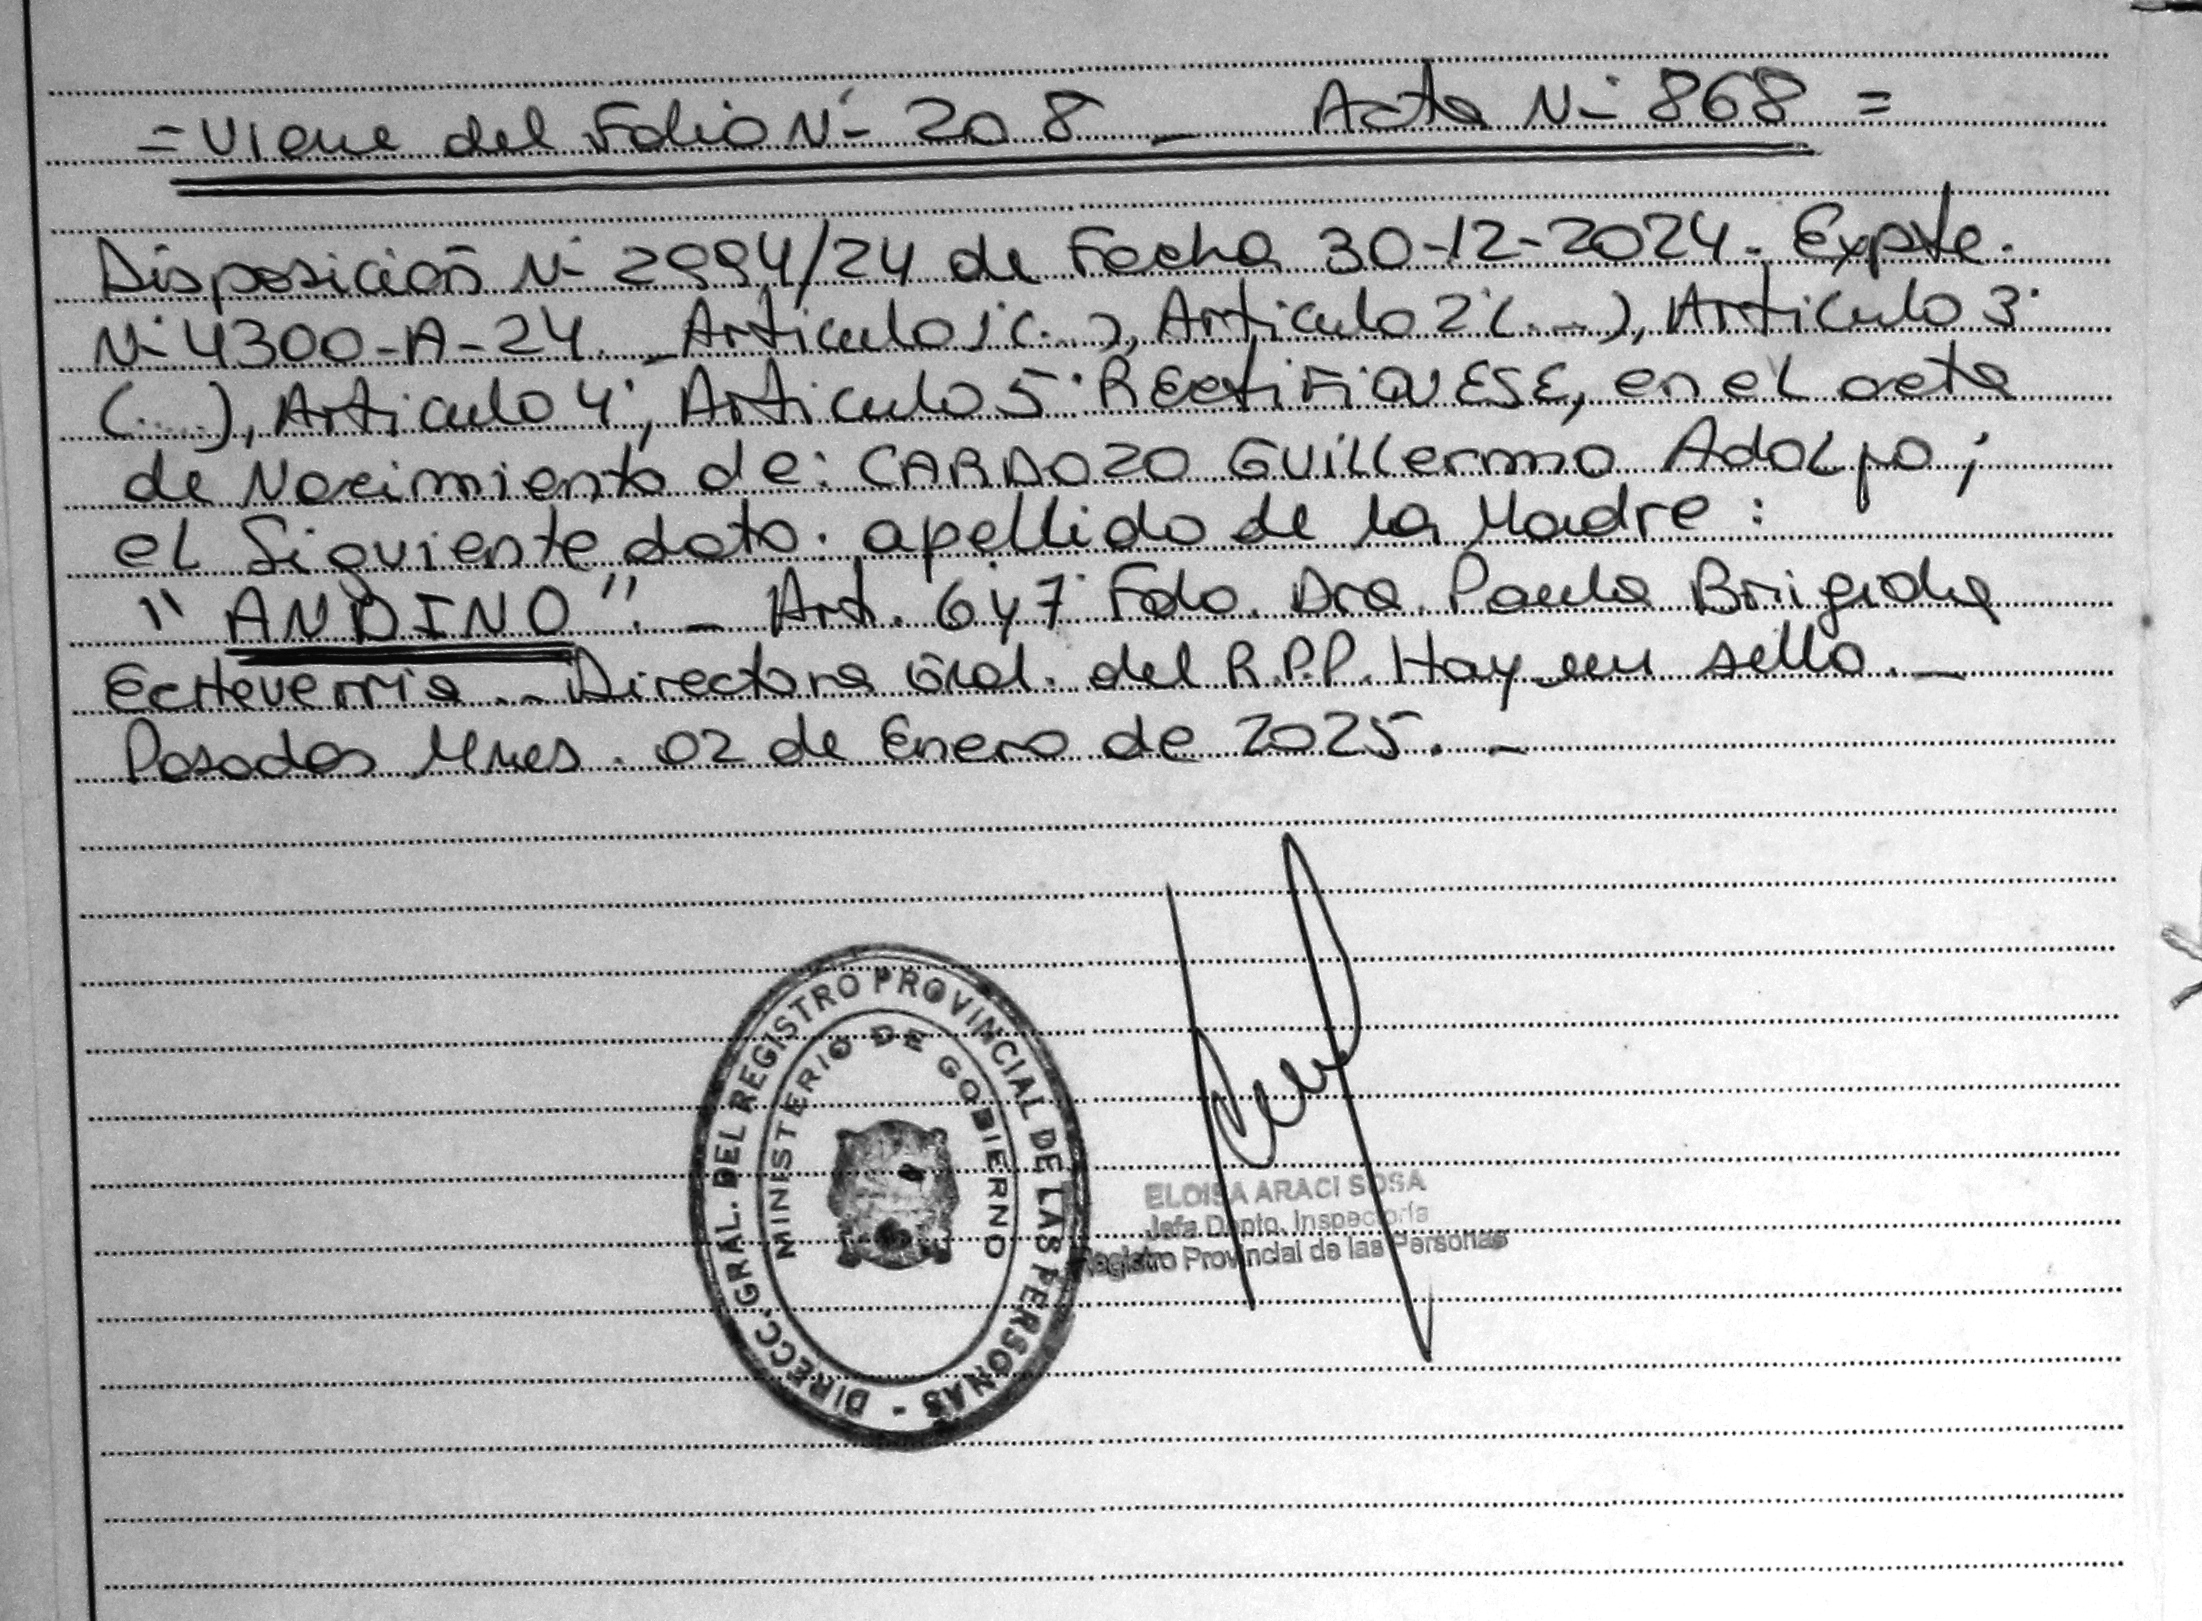 = Viene del Folio N° 208 — Acta N° 868 =
Disposición N° 2994/24 de Fecha 30-12-2024. Expte.
N° 4300-A-24. _ Artículo 1° (...), Artículo 2° (....), Artículo 3°
(.....), Artículo 4°, Artículo 5° RECTIFIQUESE, en el acta
de Nacimiento de: CARDOZO Guillermo Adolfo;
el Siguiente dato: apellido de la Madre:
"ANDINO". _ Art. 6 y 7° Fdo. Dra. Paula Brigida
Echeverria. _ Directora Gral. del R.P.P. Hay un sello. _
Posadas Mnes. 02 de Enero de 2025. _
DIRECC. GRAL. DEL REGISTRO PROVINCIAL DE LAS PERSONAS -
MINISTERIO DE GOBIERNO
ELOISA ARACI SOSA
Jefa Dpto. Inspectoría
Registro Provincial de las Personas